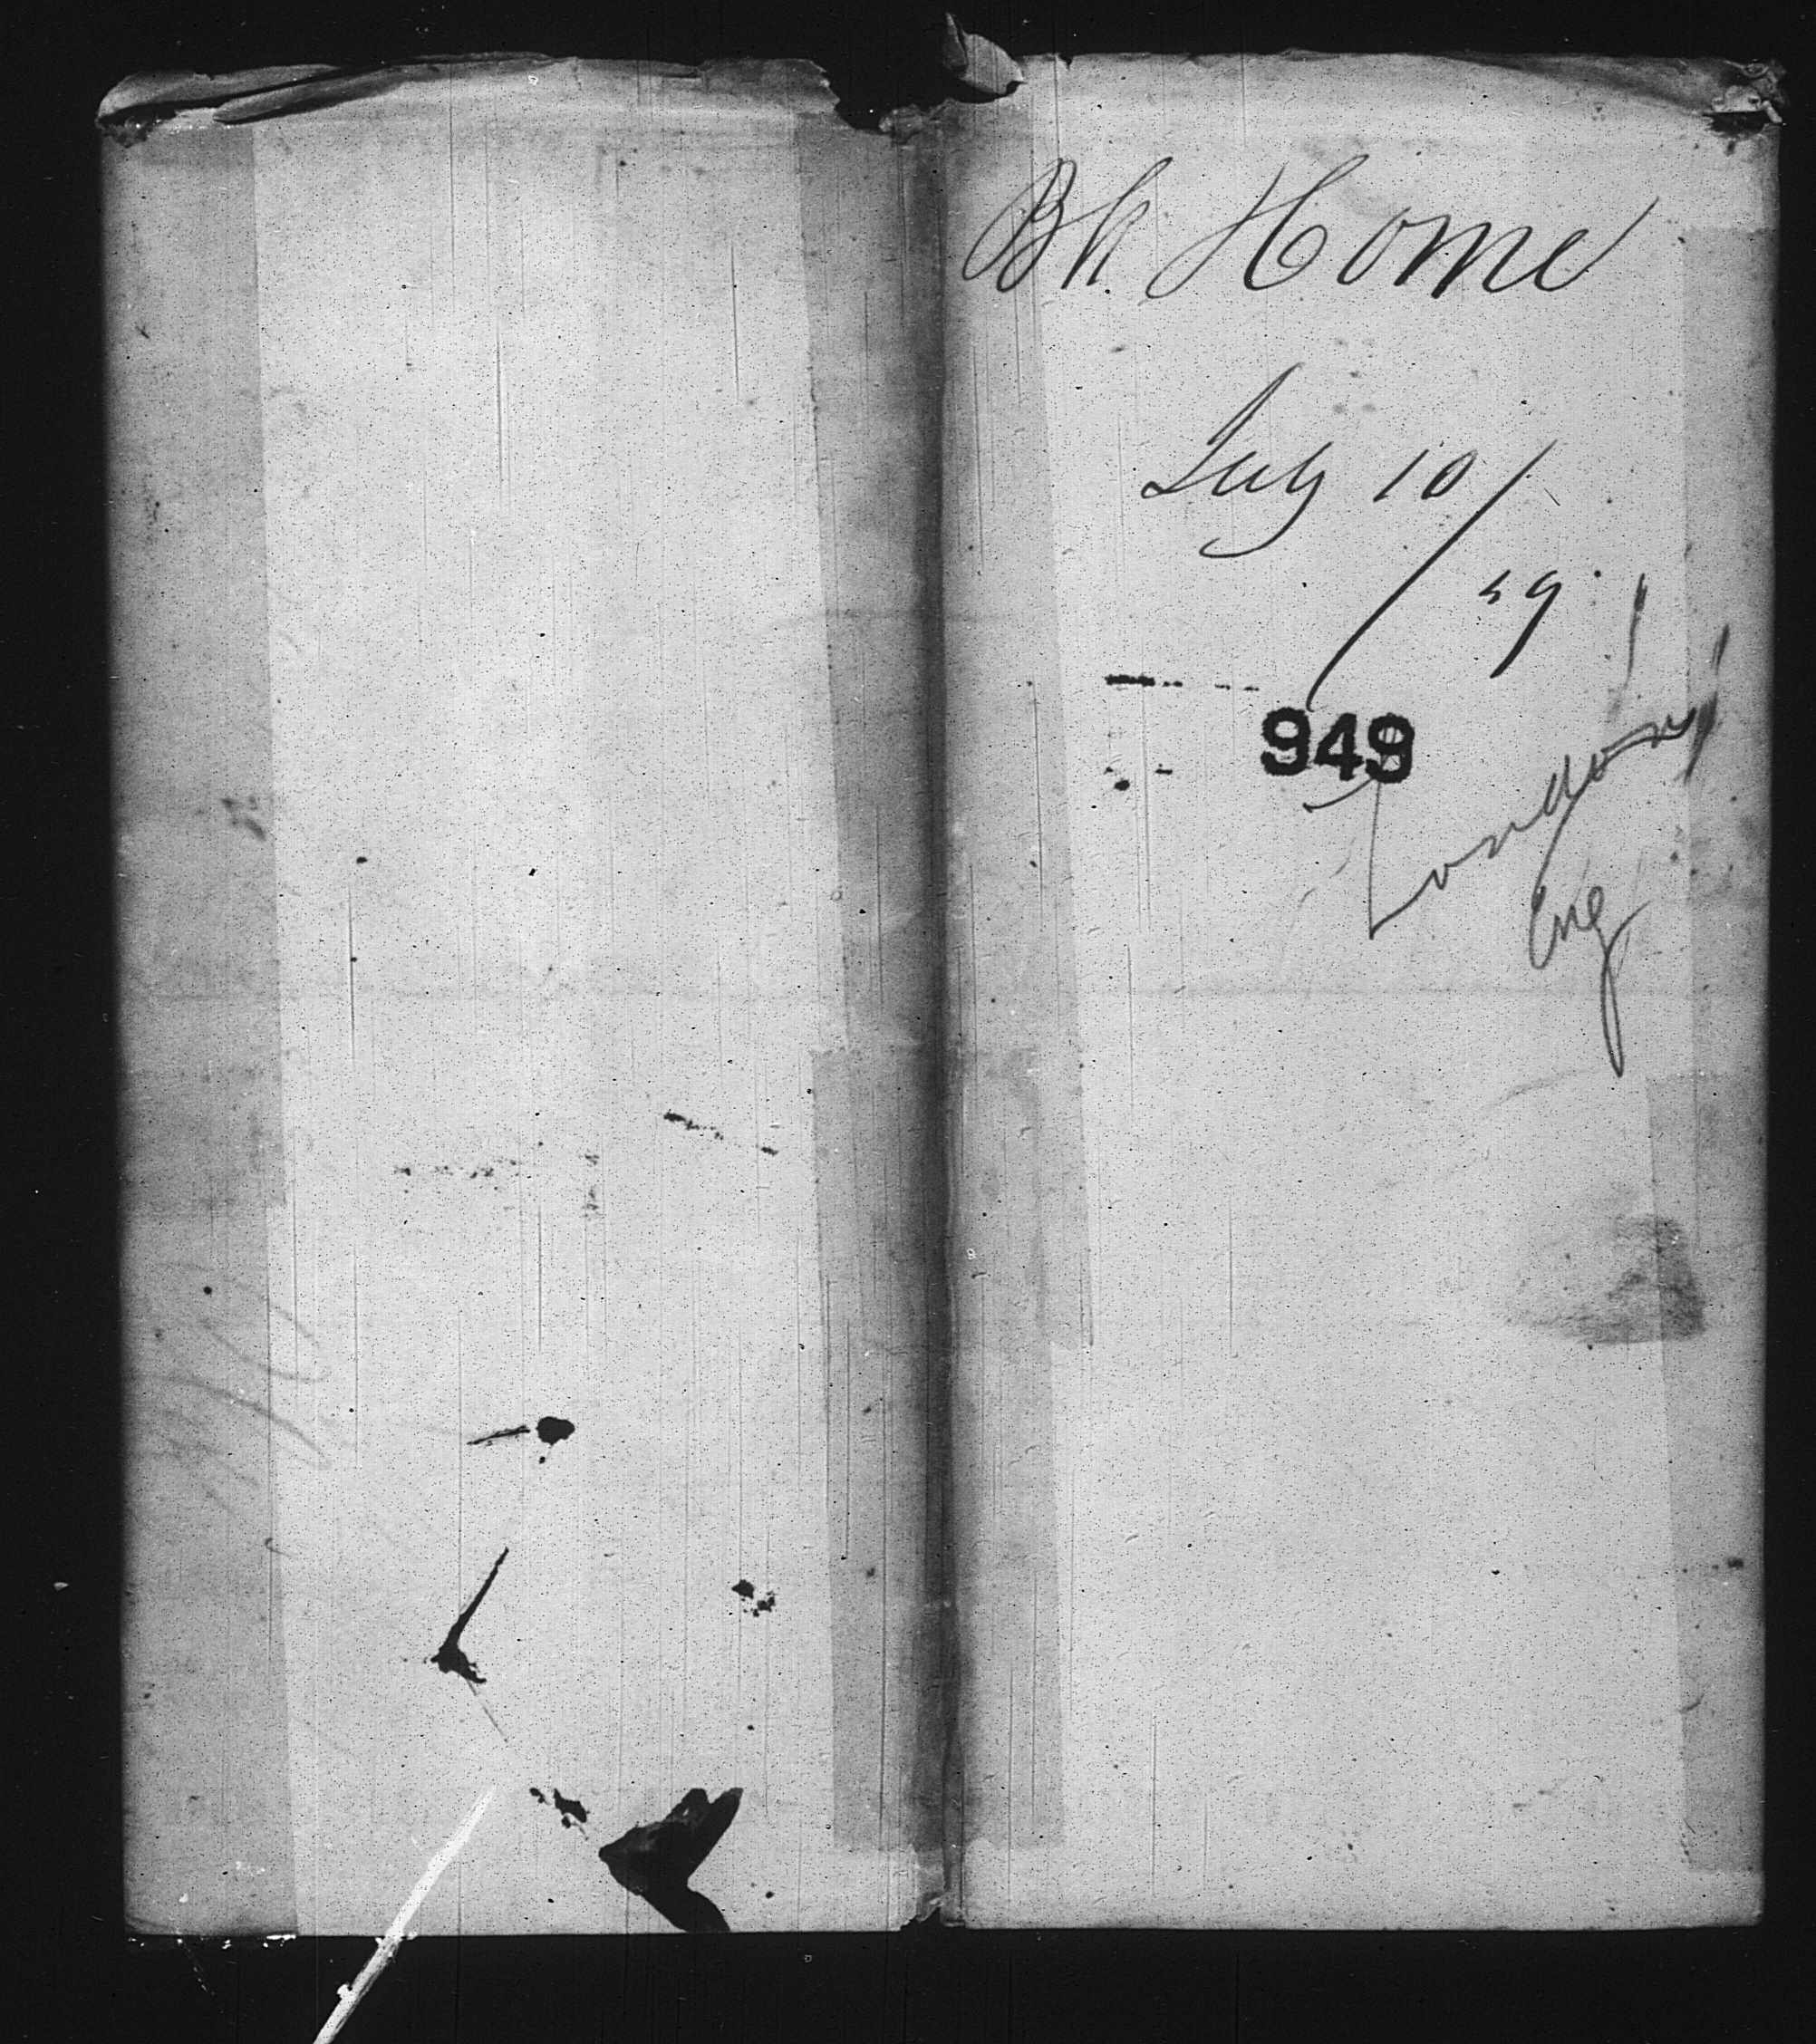 Bk Home
July 10/
59
949
London
Eng